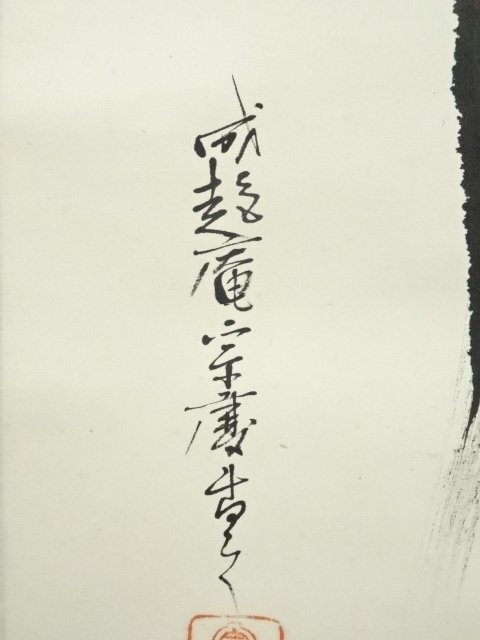 成趣庵宗慶書之